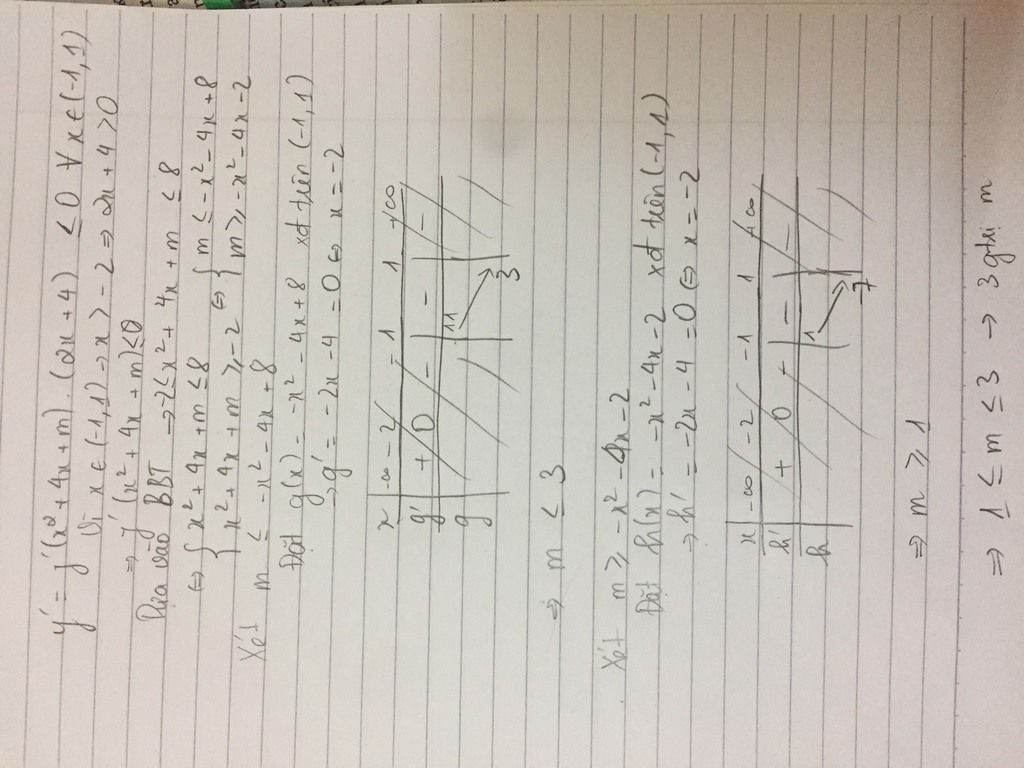 y' = f'(x² + 4x + m). (2x + 4) ≤ 0 ∀ x ∈ (-1, 1)
Vì x ∈ (-1, 1) → x > -2 ⇒ 2x + 4 > 0
⇒ f'(x² + 4x + m) ≤ 0
Dựa vào BBT → -2 ≤ x² + 4x + m ≤ 8
⇔ { x² + 4x + m ≤ 8 ⇔ { m ≤ -x² - 4x + 8
{ x² + 4x + m ≥ -2 { m ≥ -x² - 4x - 2
Xét m ≤ -x² - 4x + 8
Đặt g(x) = -x² - 4x + 8 xđ trên (-1, 1)
→ g' = -2x - 4 = 0 ⇔ x = -2
x -∞ -2 -1 1 +∞
g' + 0 - - -
g 11 3
⇒ m ≤ 3
Xét m ≥ -x² - 4x - 2
Đặt h(x) = -x² - 4x - 2 xđ trên (-1, 1)
⇒ h' = -2x - 4 = 0 ⇔ x = -2
x -∞ -2 -1 1 +∞
h' + 0 - - -
h 1 -7
⇒ m ≥ 1
⇒ 1 ≤ m ≤ 3 → 3 gtrị m